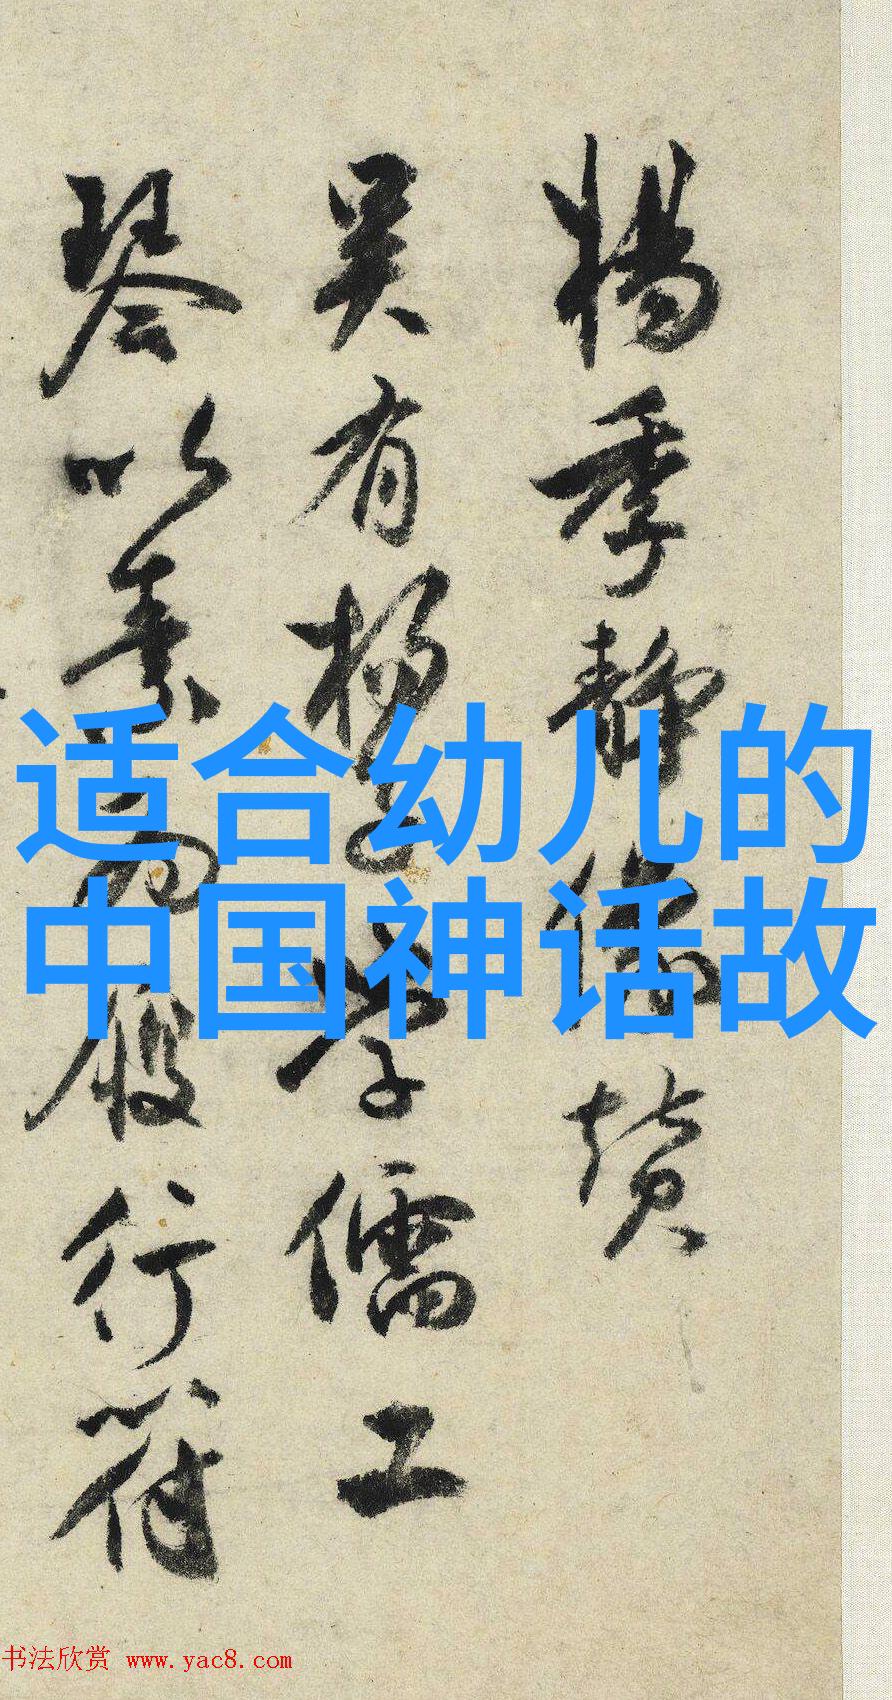 楊季静像赞
吴有楊子学儒工
琴以素為履行符
适合幼儿的
中国神话故
书法欣赏 www.yac8.com